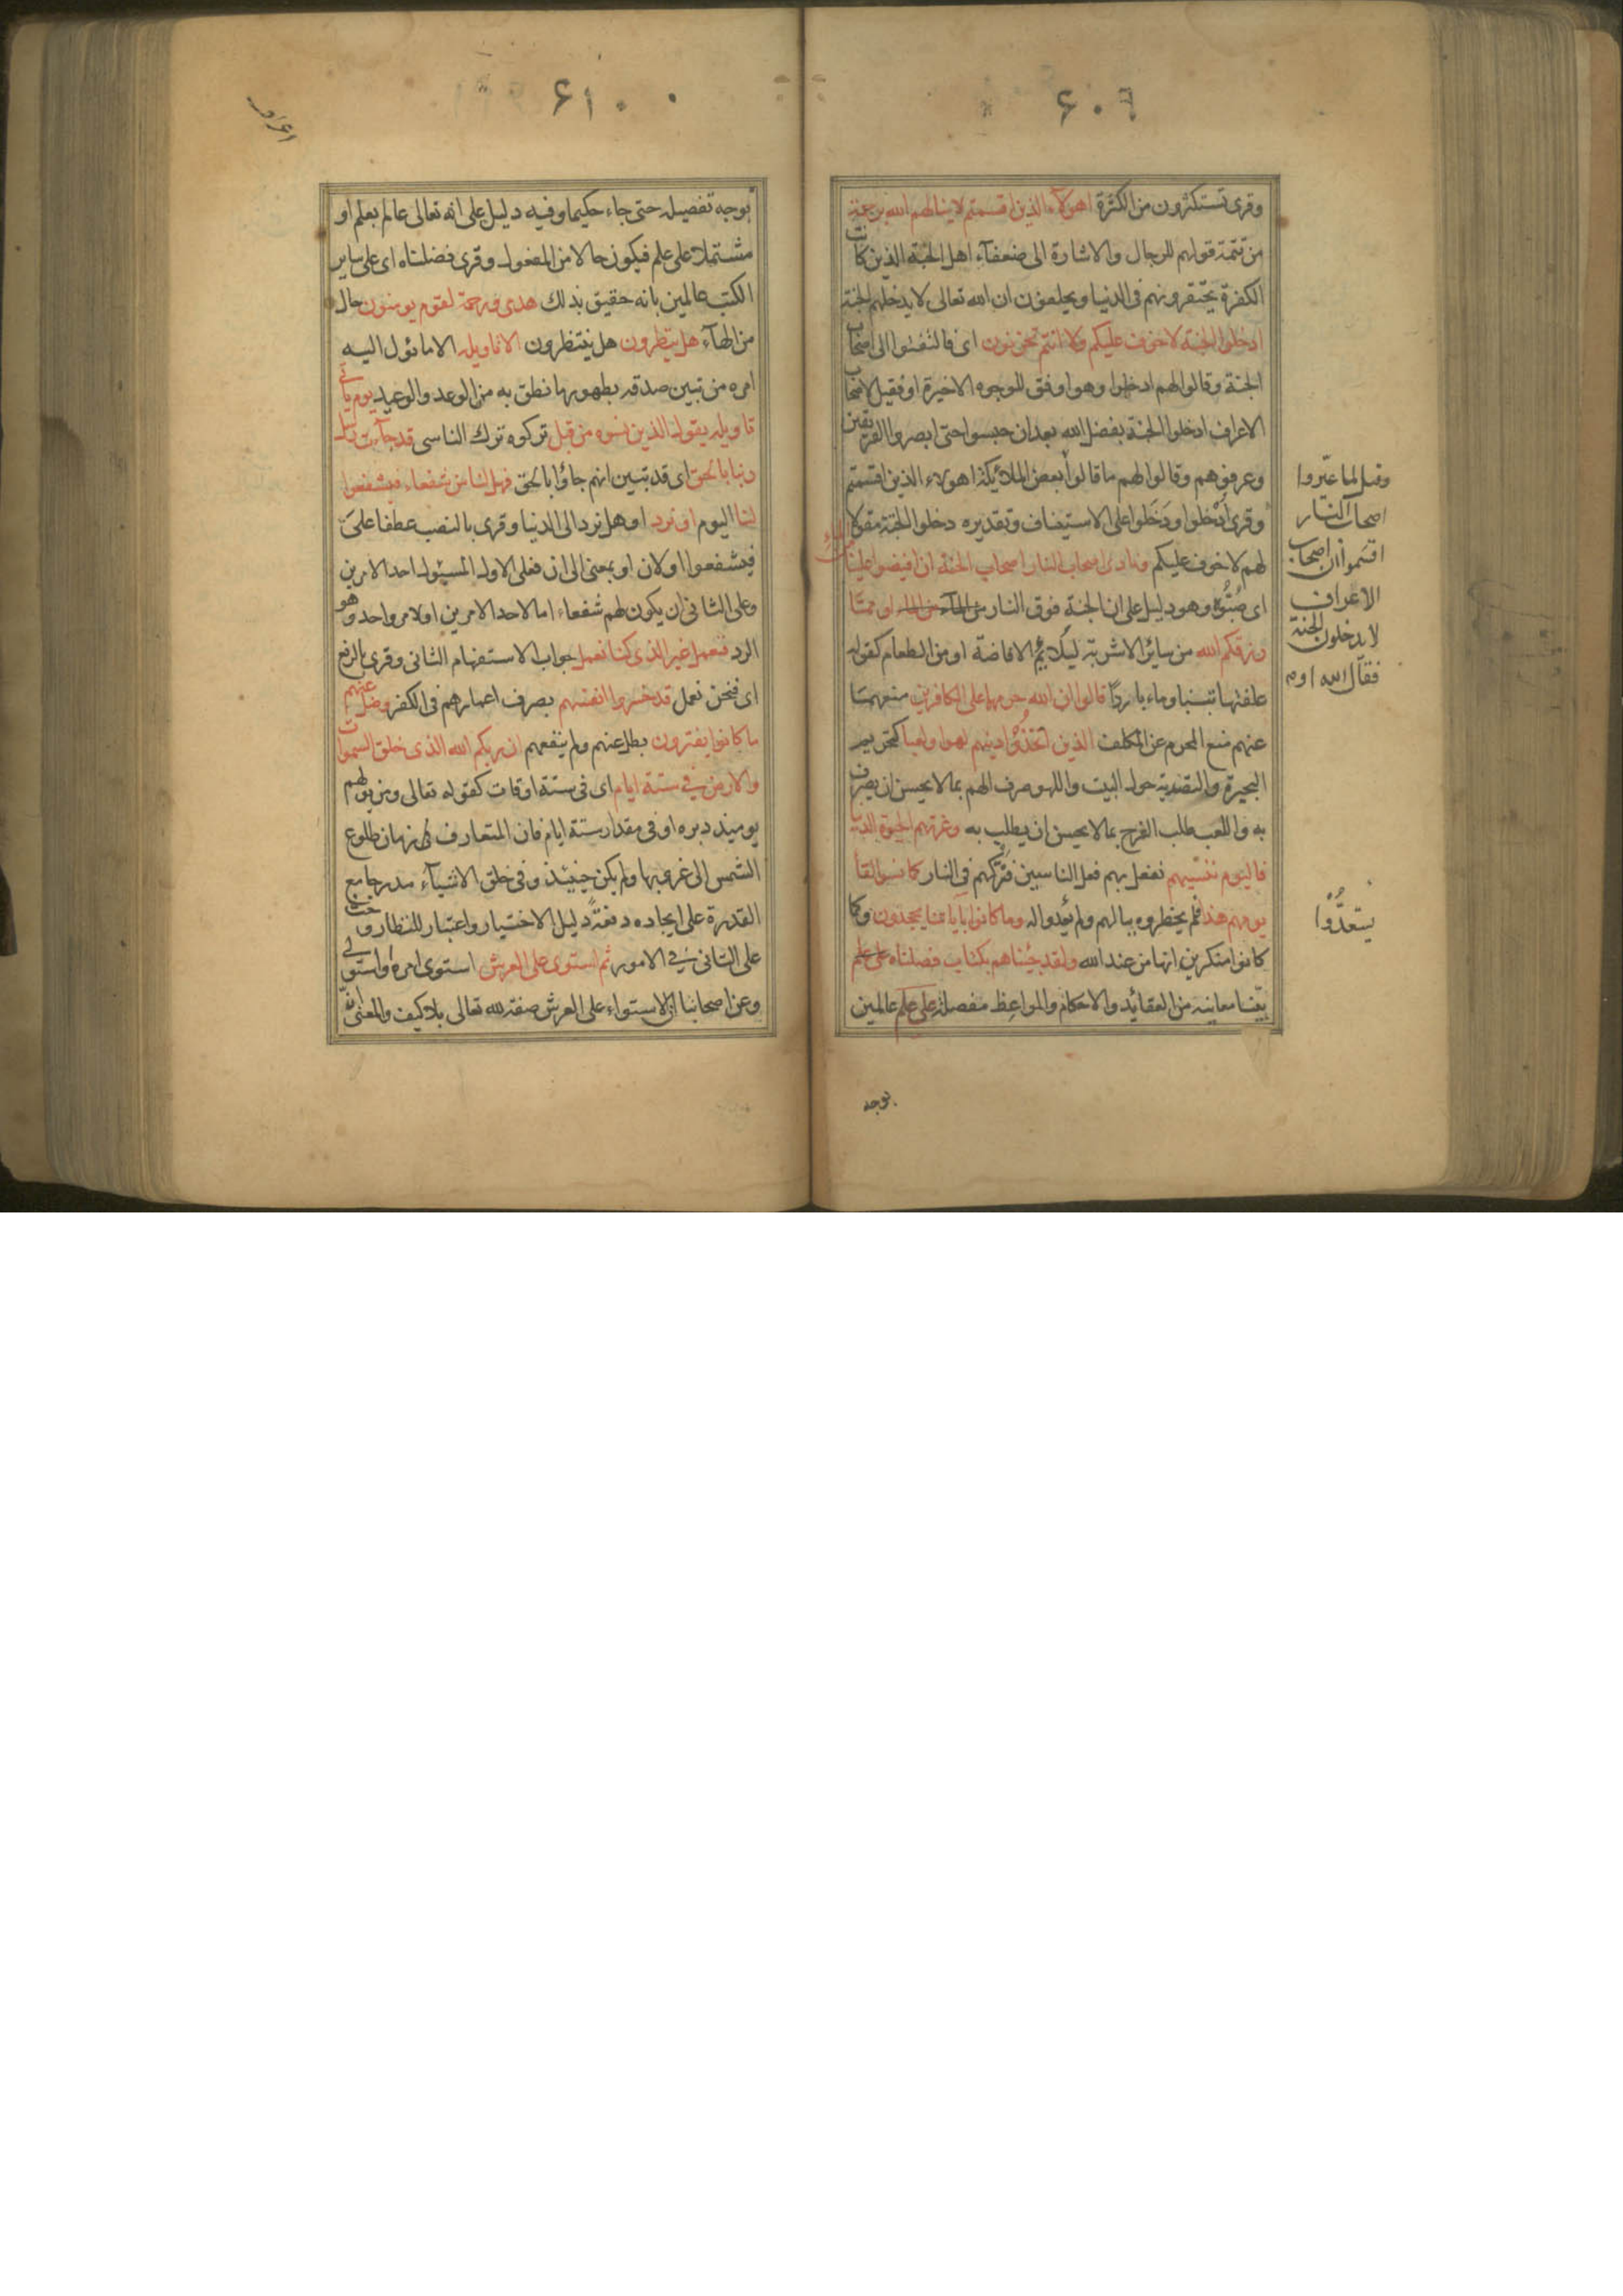 ۶۰۹
وقرئ تستكثرون من الكثرة اهولاء الذين اقسمتم لا ينالهم الله برحمة
من تتمة قولهم للرجال والاشارة الى ضعفآء اهل الجنة الذين كانت
الكفرة يحتقرونهم فى الدنيا ويحلفون ان الله تعالى لا يدخلهم الجنة
ادخلوا الجنة لا خوف عليكم ولا انتم تحزنون اى فالتفتوا الى اصحاب
الجنة وقالوا لهم ادخلوا وهو اوفق للوجوه الاخيرة او فقيل لاصحاب
الاعراف ادخلوا الجنة بفضل الله بعد ان حبسوا حتى ابصروا الفريقين
وعرفوهم وقالوا لهم ما قالوا بعض الملائكة اهولاء الذين اقسمتم
وقرئ اُدْخلوا ودَخَلوا على الاستيناف وتقديره دخلوا الجنة مقولا
لهم لا خوف عليكم ونادى اصحاب النار اصحاب الجنة ان افيضوا علينا
اى صُبُّوه وهو دليل على ان الجنة فوق النار من المآء من الماء او ممّا
رزقكم الله من سائر الاشربة ليلائم الافاضة او من الطعام كقوله
علفتها تبنا وماء باردًا قالوا ان الله حرمهما على الكافرين منعهما
عنهم منع المحرم عن المكلف الذين اتخذُوْا دينهم لهوا ولعبا كتحريم
البحيرة والتصدية حول البيت واللهو صرف الهم بما لا يحسن ان يصرف
به واللعب طلب الفرح بما لا يحسن ان يطلب به وغرتهم الحيوة الدنيا
فاليوم ننسيهم نفعل بهم فعل الناسين فنتركهم فى النار كما نسوا لقآ
يومهم هذا فلم يخطروه ببالهم ولم يعدوا له وما كانوا بآياتنا يجحدون وكما
كانوا منكرين انها من عند الله ولقد جئناهم بكتاب فصلناه على علم
بيّنا معانيه من العقائد والاحكام والمواعظ مفصلة على علم عالمين
وقيل لما عيّروا
اصحاب النار
اقسموا ان اصحاب
الاعراف
لا يدخلون الجنة
فقال الله او
يستعدُّوا
بوجه
۶۱۰
بوجه تفصيله حتى جاء حكيما وفيه دليل على انه تعالى عالم بعلم او
مشتملا على علم فيكون حالا من المفعول وقرئ فضلناه اى على ساير
الكتب عالمين بانه حقيق بذلك هدى ورحمة لقوم يومنون حال
من الهآء هل ينظرون هل ينتظرون الا تاويله الا ما يئول اليه
امره من تبين صدقه بظهور ما نطق به من الوعد والوعيد يوم ياتى
تاويله يقول الذين نسوه من قبل تركوه ترك الناسى قد جآءت رسل
ربنا بالحق اى قد تبين انهم جاؤا بالحق فهل لنا من شفعاء فيشفعوا
لنا اليوم او نرد او هل نرد الى الدنيا وقرئ بالنصب عطفا على
فيشفعوا او لان او بمعنى الى ان فعلى الاول المسئول احد الامرين
وعلى الثانى ان يكون لهم شفعاء اما لاحد الامرين او لامر واحد وهو
الرد فنعمل غير الذى كنا نعمل جواب الاستفهام الثانى وقرئ بالرفع
اى فنحن نعمل قد خسروا انفسهم بصرف اعمارهم فى الكفر وضل عنهم
ما كانوا يفترون بطل عنهم ولم ينفعهم ان ربكم الله الذى خلق السموات
والارض فى ستة ايام اى فى ستة اوقات كقوله تعالى ومن يولهم
يوميذ دبره او فى مقدار ستة ايام فان المتعارف زمان طلوع
الشمس الى غروبها ولم يكن حينئذ وفى خلق الاشيآء مدرجا مع
القدرة على ايجاده دفعةً دليل الاختيار واعتبار للنظار وحث
على التانى فى الامور ثم استوى على العرش استوى امره واستولى
وعن اصحابنا ان الاستواء على العرش صفة لله تعالى بلا كيف والمعنى انه